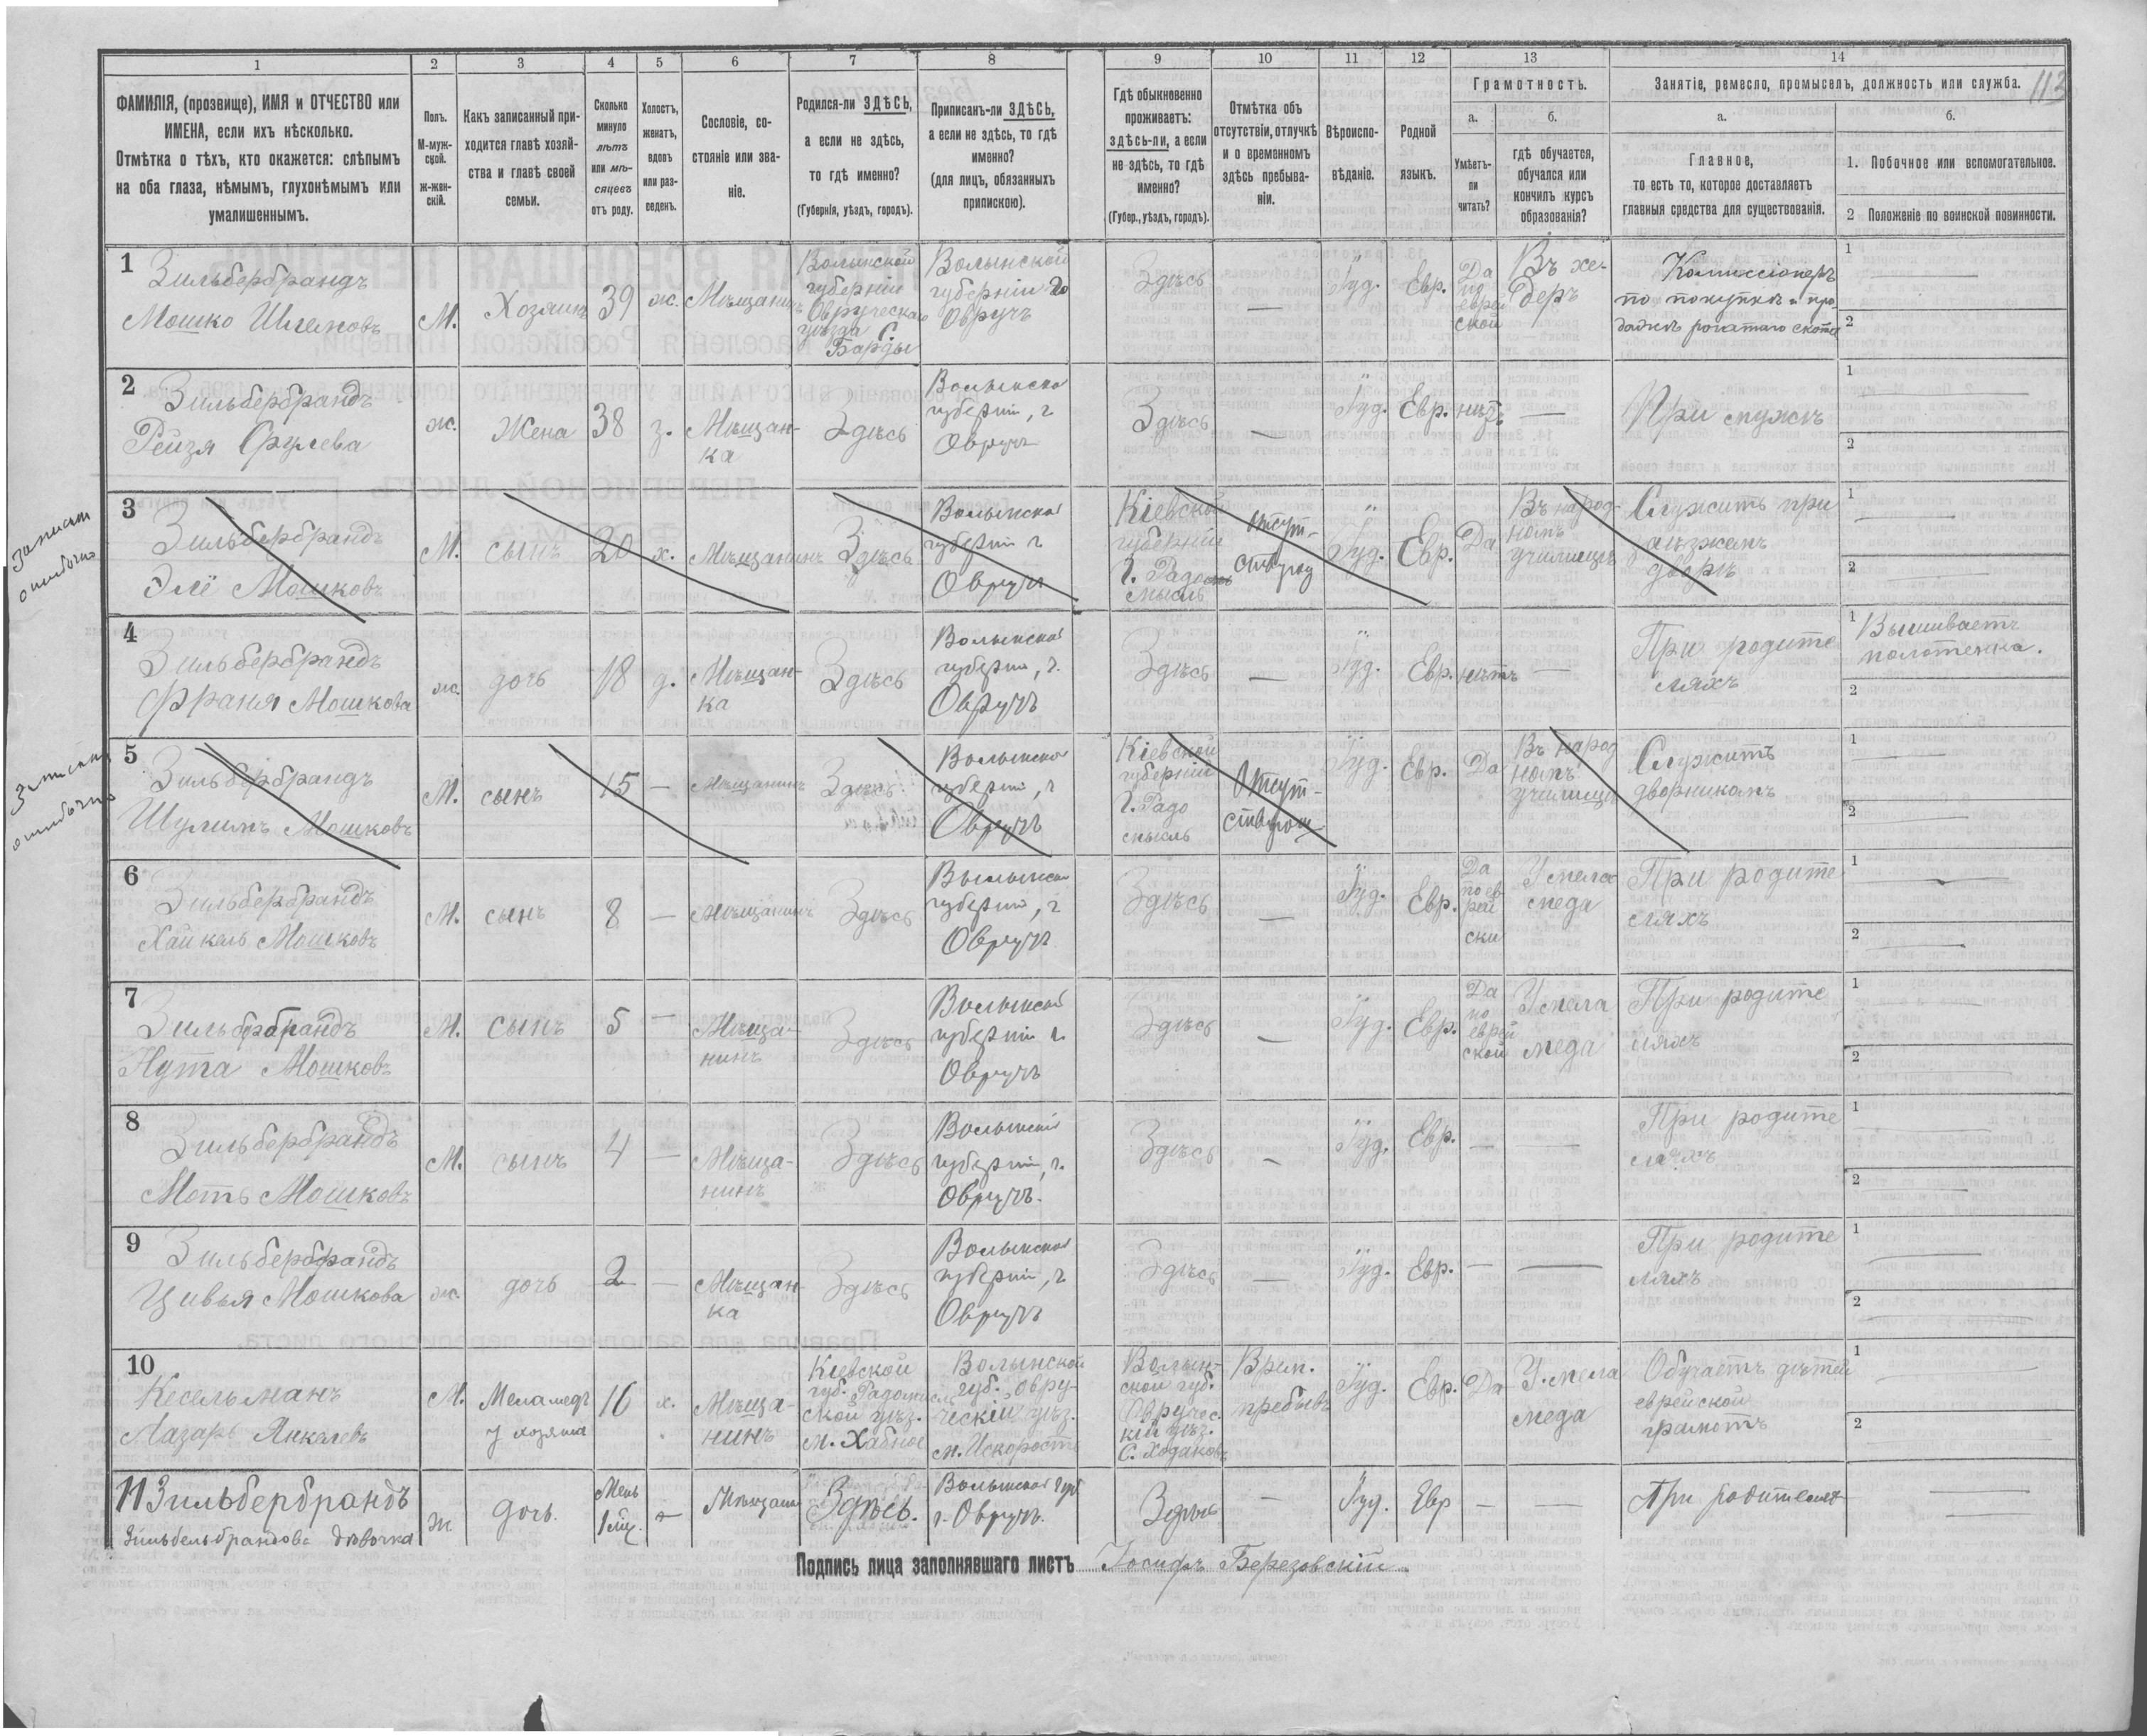 113
1 2 3 4 5 6 7 8 9 10 11 12 13 14
ФАМИЛІЯ, (прозвище), ИМЯ и ОТЧЕСТВО или
ИМЕНА, если ихъ нѣсколько.
Отмѣтка о тѣхъ, кто окажется: слѣпымъ
на оба глаза, нѣмымъ, глухонѣмымъ или
умалишеннымъ.
Полъ.
М-муж-
ской.
ж-жен-
скій.
Какъ записанный при-
ходится главѣ хозяй-
ства и главѣ своей
семьи.
Сколько
минуло
лѣтъ
или мѣ-
сяцевъ
отъ роду.
Холостъ,
женатъ,
вдовъ
или раз-
веденъ.
Сословіе, со-
стояніе или зва-
ніе.
Родился-ли ЗДѢСЬ,
а если не здѣсь,
то гдѣ именно?
(Губернія, уѣздъ, городъ).
Приписанъ-ли ЗДѢСЬ,
а если не здѣсь, то гдѣ
именно?
(для лицъ, обязанныхъ
припискою).
Гдѣ обыкновенно
проживаетъ:
здѣсь-ли, а если
не здѣсь, то гдѣ
именно?
(Губер., уѣздъ, городъ).
Отмѣтка объ
отсутствіи, отлучкѣ
и о временномъ
здѣсь пребыва-
ніи.
Вѣроиспо-
вѣданіе.
Родной
языкъ.
Грамотность.
а.
Умѣетъ-
ли
читать?
б.
гдѣ обучается,
обучался или
кончилъ курсъ
образованія?
Занятіе, ремесло, промыселъ, должность или служба.
а.
Главное,
то есть то, которое доставляетъ
главныя средства для существованія.
б.
1. Побочное или вспомогательное.
2 Положеніе по воинской повинности.
1
Зильбербрандъ
Мошко
М.
Хозяинъ
39
ж.
Мѣщанинъ
Волынской
губерніи
Овручскаго
уѣзда С.
Барды
Волынской
губерніи го
Овручъ
Здѣсь
—
Іуд.
Евр.
Да
по
еврей
ской
Въ хе-
дерѣ
Коммиссіонеръ
по покупкѣ и про
дажѣ рогатаго скота
1 —
2
2
Зильбербрандъ
Рейзя Срулева
ж.
Жена
38
з.
Мѣщан-
ка
Здѣсь
Волынской
губерніи, г
Овручъ
Здѣсь
—
Іуд.
Евр.
нѣтъ
—
При мужѣ
1
2
записанъ
ошибочно
3
Зильбербрандъ
Элё Мошковъ
М.
сынъ
20
х.
Мѣщанинъ
Здѣсь
Волынской
губерніи г
Овручъ
Кіевской
губерніи
г. Радо
мысль
отсут-
ствуют
Іуд.
Евр.
Да
Въ народ-
номъ
училищѣ
Служитъ при
дворѣ
1 —
2 —
4
Зильбербрандъ
Франя Мошкова
ж.
дочь
18
д.
Мѣщан-
ка
Здѣсь
Волынской
губерніи, г.
Овручъ
Здѣсь
—
Іуд.
Евр.
нѣтъ
—
При родите
ляхъ
1 Вышиваетъ
полотенца.
2
записанъ
ошибочно
5
Зильбербрандъ
Шулимъ Мошковъ
М.
сынъ
15
—
Мѣщанинъ
Здѣсь
Волынской
губерніи, г
Овручъ
Кіевской
губерніи
г. Радо
мысль
Отсут-
ствуют
Іуд.
Евр.
Да
Въ народ
номъ
училищѣ
Служитъ
дворникомъ
1 —
2 —
6
Зильбербрандъ
Хайкель Мошковъ
М.
сынъ
8
—
Мѣщанинъ
Здѣсь
Волынской
губерніи, г
Овручъ
Здѣсь
—
Іуд.
Евр.
Да
по ев
рей
ски
У мела
меда
При родите
ляхъ
1 —
2 —
7
Зильбербрандъ
Нута Мошковъ
М.
сынъ
5
—
Мѣща-
нинъ
Здѣсь
Волынской
губерніи г.
Овручъ
Здѣсь
—
Іуд.
Евр.
Да
по
еврей
ской
У мела
меда
При родите
ляхъ
1 —
2 —
8
Зильбербрандъ
Мотъ Мошковъ
М.
сынъ
4
—
Мѣща-
нинъ
Здѣсь
Волынской
губерніи, г.
Овручъ.
Здѣсь
—
Іуд.
Евр.
—
—
При родите
ляхъ
1 —
2 —
9
Зильбербрандъ
Цивья Мошкова
ж.
дочь
2
—
Мѣщан-
ка
Здѣсь
Волынской
губерніи, г
Овручъ
Здѣсь
—
Іуд.
Евр.
—
—
При родите
ляхъ
1 —
2 —
10
Кесельманъ
Лазарь Янкелевъ
М.
Меламедъ
у хозяина
16
х.
Мѣща-
нинъ
Кіевской
губ. Радомысль
ской уѣз.
м. Хабное
Волынской
губ. Овру-
ческій уѣз.
м. Искорость
Волын-
ской губ.
Овручес.
кій уѣз.
С. Ходаковъ
Врем.
пребыв
Іуд.
Евр.
Да
У мела
меда
Обучаетъ дѣтей
еврейской
грамотѣ
1 —
2 —
11 Зильбербрандъ
Зильбельбрандова дѣвочка
ж.
дочь.
Мень
1 мѣс.
—
Мѣщанка
Здѣсь.
Волынской губ
г. Овручъ.
Здѣсь
—
Іуд.
Евр
—
—
При родителяхъ
—
—
Подпись лица заполнявшаго листъ Іосифъ Березовскій